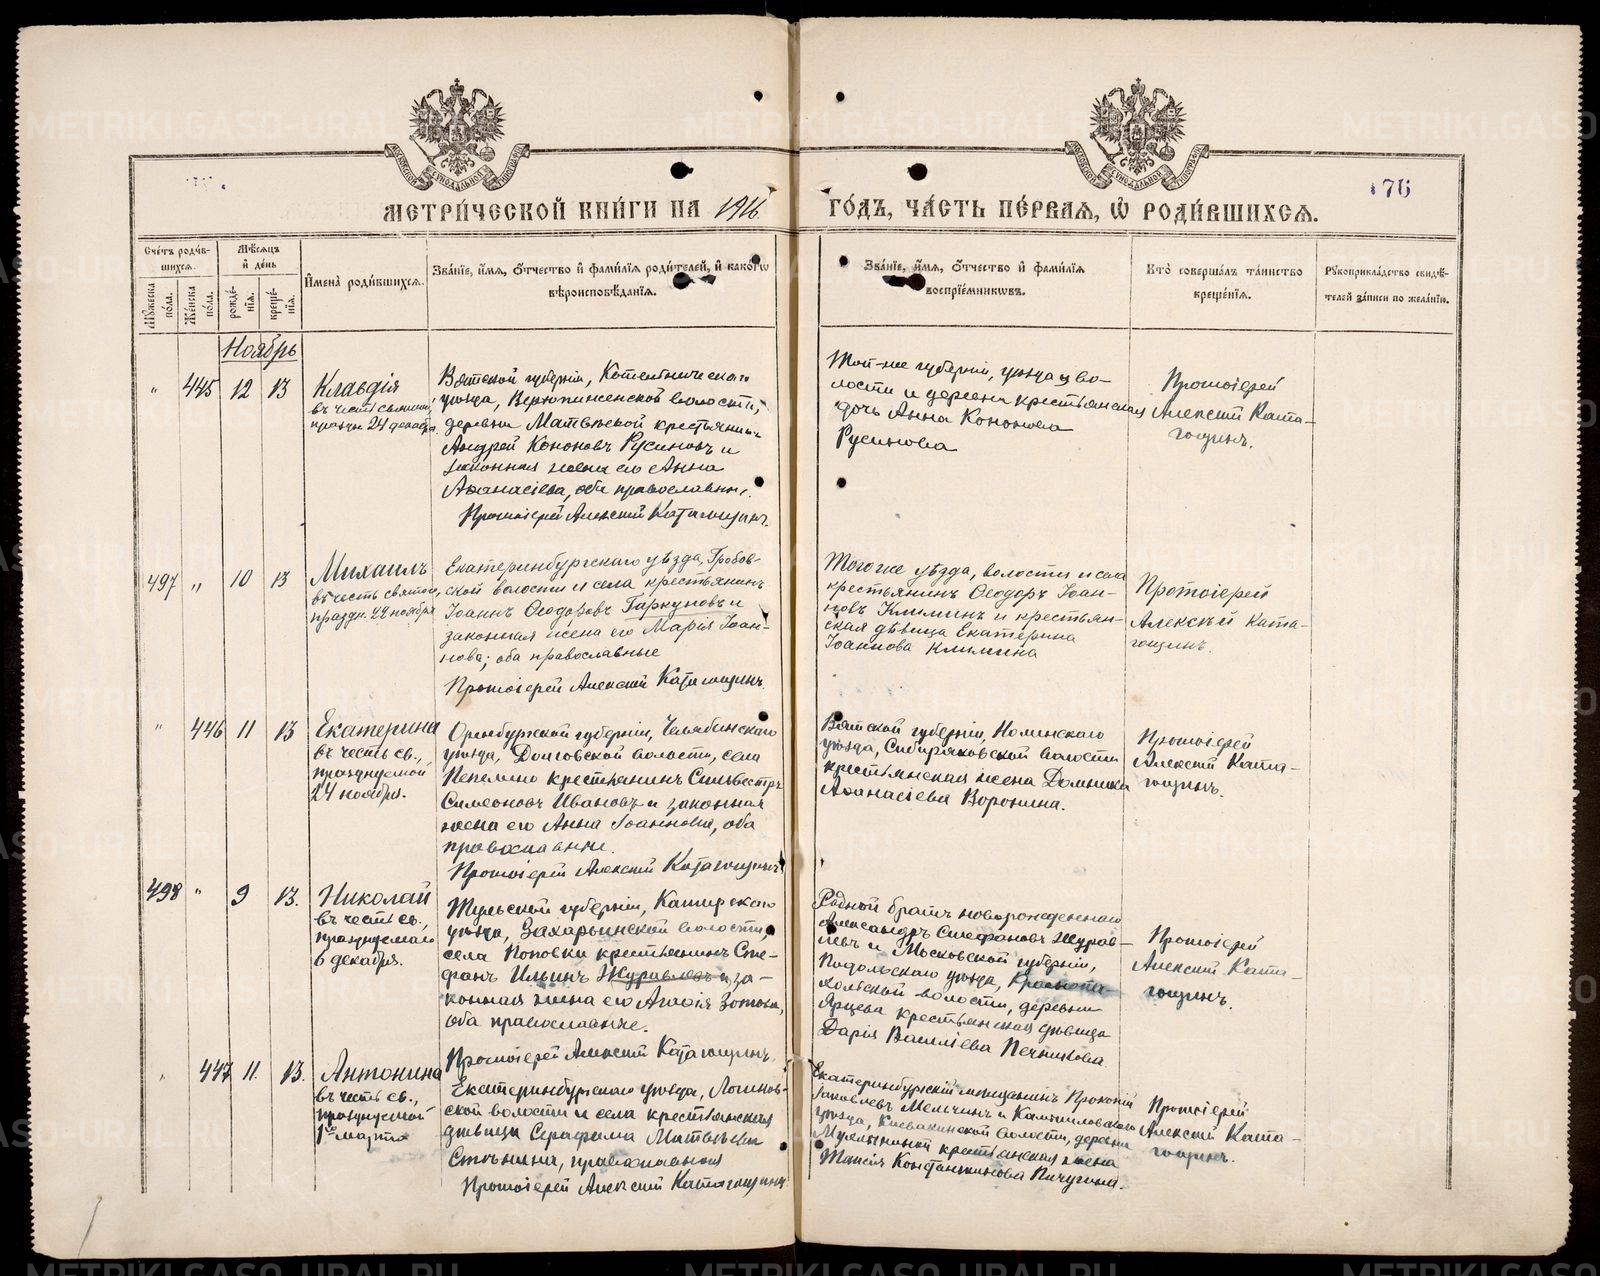 МЕТРИ́ЧЕСКОЙ КНИ́ГИ НА 1916
ГО́ДЪ, ЧА́СТЬ ПЕ́РВАЯ, Ѡ҆ РОДИ́ВШИХСЯ.
176
Сче́тъ роди́в-
шихся.
Мѣ́сяцъ
и҆ де́нь
Му́жеска
по́ла.
Же́нска
по́ла.
рожде́-
нія.
креще́-
нія.
И҆мена̀ роди́вшихся.
Зва́ніе, и҆́мя, ѻ҆́тчество и҆ фами́лія роди́телей, и҆ како́гѡ
вѣроисповѣ́данія.
Зва́ніе, и҆́мя, ѻ҆́тчество и҆ фами́лія
воспрїе́мниковъ.
Кто̀ соверша́лъ та́инство
креще́нія.
Рꙋкоприкла́дство свидѣ́-
телей за́писи по жела́нію.
Ноябрь
" 445 12 13
Клавдія
въ честь св.
праздн. 24 декабря
Вятской губерніи, Котельническаго
уѣзда, Верхопижемской волости,
деревни Матвѣевской крестьянинъ
Андрей Кононовъ Русиновъ и
законная жена его Анна
Аѳанасіева, оба православные.
Протоіерей Алексій Катагощинъ.
Той-же губерніи, уѣзда, во-
лости и деревни крестьянская
дочь Анна Кононова
Русинова
Протоіерей
Алексій Ката-
гощинъ.
497 " 10 13
Михаилъ
въ честь святого,
праздн. 22 ноября
Екатеринбургскаго уѣзда, Гробов-
ской волости и села крестьянинъ
Іоаннъ Ѳеодоровъ Гаркуновъ и
законная жена его Марія Іоан-
нова; оба православные
Протоіерей Алексій Катагощинъ.
Того же уѣзда, волости и села
крестьянинъ Ѳеодоръ Іоан-
новъ Климинъ и крестьян-
ская дѣвица Екатерина
Іоаннова Климина
Протоіерей
Алексѣй Ката-
гощинъ.
" 446 11 13
Екатерина
въ честь св.,
празднуемой
24 ноября.
Оренбургской губерніи, Челябинскаго
уѣзда, Долговской волости, села
Пепелино крестьянинъ Сильвестръ
Симеоновъ Ивановъ и законная
жена его Анна Іоаннова, оба
православные.
Протоіерей Алексій Катагощинъ
Вятской губерніи, Нолинскаго
уѣзда, Сибиряковской волости
крестьянская жена Домника
Аѳанасіева Воронина.
Протоіерей
Алексій Ката-
гощинъ.
498 " 9 13.
Николай
въ честь св.,
празднуемаго
6 декабря.
Тульской губерніи, Каширскаго
уѣзда, Захарьинской волости,
села Поповки крестьянинъ Сте-
фанъ Ильинъ Журавлевъ и за-
конная жена его Агаѳія Зотова,
оба православные.
Протоіерей Алексій Катагощинъ.
Родной братъ новорожденнаго
Александръ Стефановъ Журав-
левъ и Московской губерніи,
Подольскаго уѣзда, Краснопа-
хольской волости, деревни
Ярцева крестьянская дѣвица
Дарія Василіева Печникова
Протоіерей
Алексій Ката-
гощинъ.
" 447 11. 13.
Антонина
въ честь св.,
празднуемой
1го марта
Екатеринбургскаго уѣзда, Логинов-
ской волости и села крестьянская
дѣвица Серафима Матвѣева
православная
Протоіерей Алексій Катагощинъ
Екатеринбургскій мѣщанинъ Прокопій
Іаковлевъ Мельчинъ и Камышловскаго
уѣзда, волости, деревни
крестьянская жена
Таисія Константинова Пичугина.
Протоіерей
Алексій Ката-
гощинъ.
METRIKI.GASO-URAL.RU